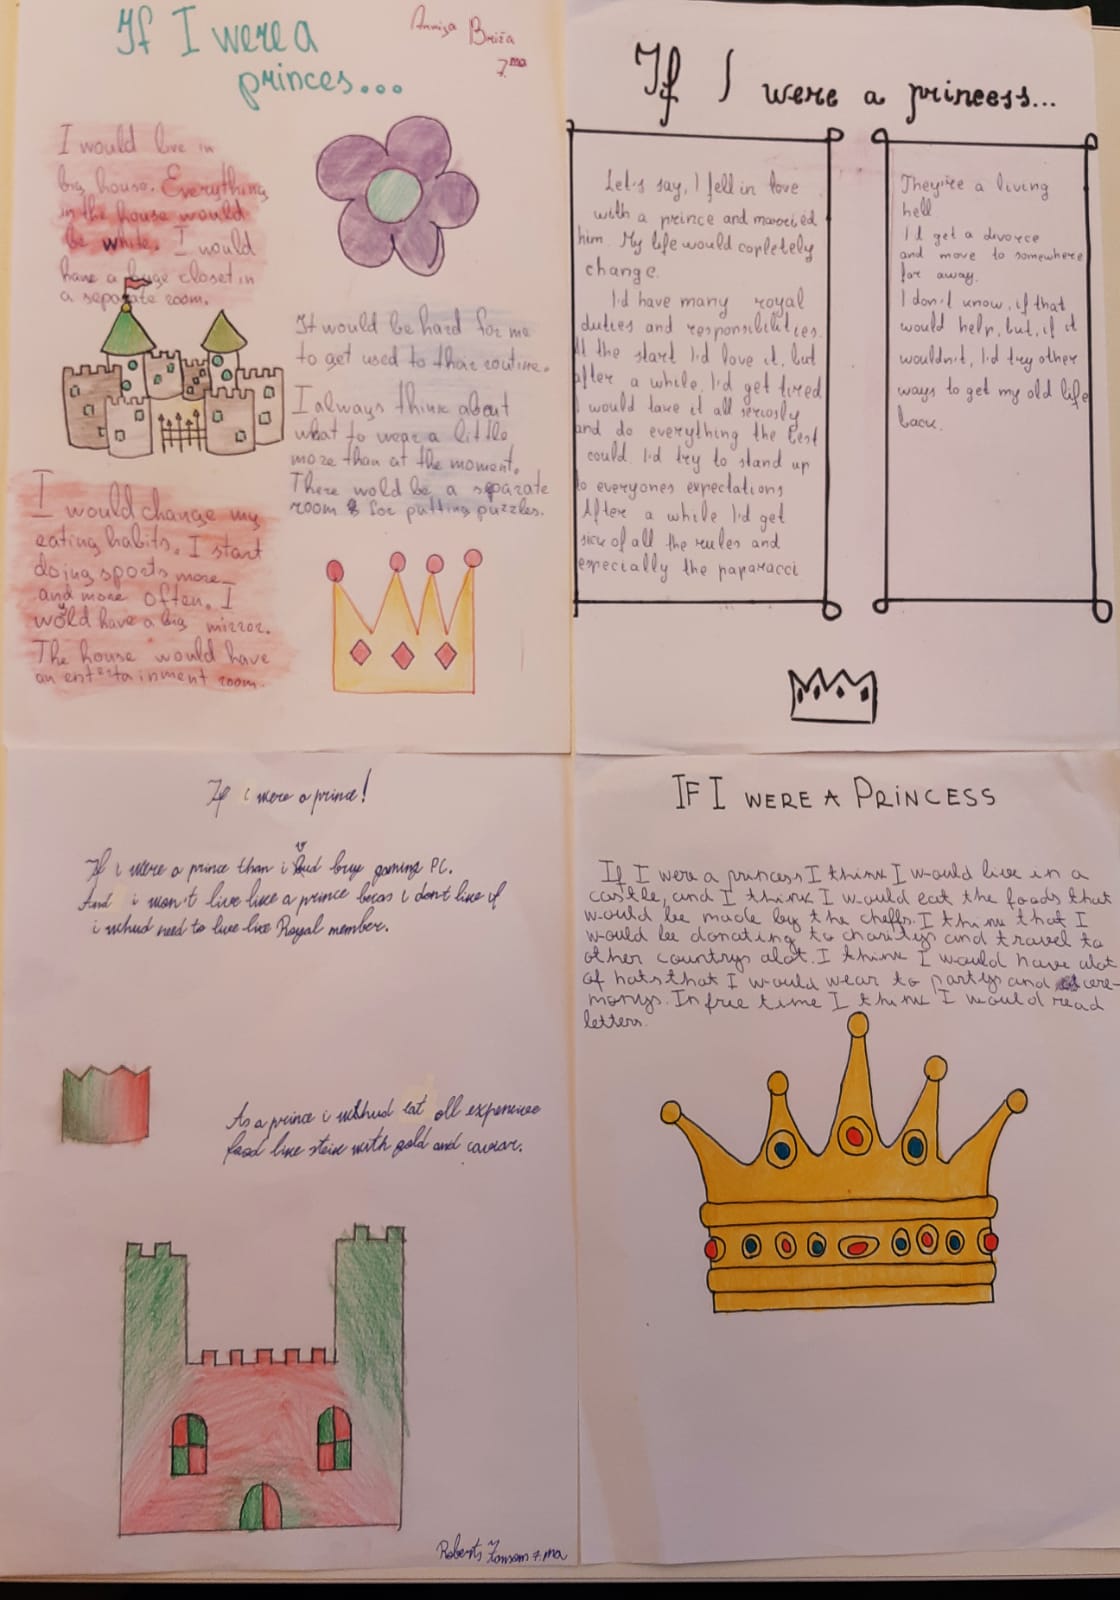 If I were a
princes...
7.ma
I would live in
big house. Everything
in the house would
be white. I would
have a huge closet in
a separate room.
It would be hard for me
to get used to their routine.
I always think about
what to wear a little
more than at the moment.
There wold be a separate
room for putting puzzles.
I would change my
eating habits. I start
doing sports more
and more often. I
would have a big mirror.
The house would have
an entertainment room.
If I were a princess...
Let's say, I fell in love
with a prince and married
him. My life would copletely
change.
I'd have many royal
duties and responsibilities.
At the start I'd love it, but
after a while I'd get tired
I would take it all seriosly
and do everything the best
I could. I'd try to stand up
to everyones expectations
After a while I'd get
sick of all the rules and
especially the paparacci
They're a living
hell
I'd get a divorce
and move to somewhere
far away.
I don't know, if that
would help, but, if it
wouldn't, I'd try other
ways to get my old life
back.
If i were a prince!
If i were a prince than i buy gaming PC.
And i won't live like a prince becas i dont like if
i whud need to live like Royal member.
As a prince i whud eat all expencive
food like steik with gold and caviar.
Roberts 7.ma
IF I WERE A PRINCESS
If I were a princess I think I would live in a
castle, and I think I would eat the foods that
would be made by the cheffs. I think that I
would be donating to charitys and travel to
other countrys alot. I think I would have alot
of hats that I would wear to partys and cere-
monys. In free time I think I would read
letters.